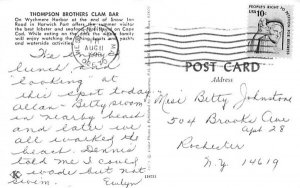 THOMPSON BROTHERS CLAM BAR
On Wychmere Harbor at the end of Snow Inn
Road in Harwich Port offers the summer visitor
the best lobster and seafood on Cape
Cod. While eating the whole family
will enjoy watching the yachts
and waterside activities.
PEOPLE'S RIGHT TO PETITION FOR REDRESS
USA 10c
AUG 11
PM
POST CARD
Address
The
lunch
looking at
this spot today
Allan - Betty swam
in nearby beach
and later we
all walked the
beach. Dennis
told me I could
wade but not
swim. Evelyn
Miss Betty Johnstone
504 Brooks Ave
Apt 28
Rochester
N.Y. 14619
K